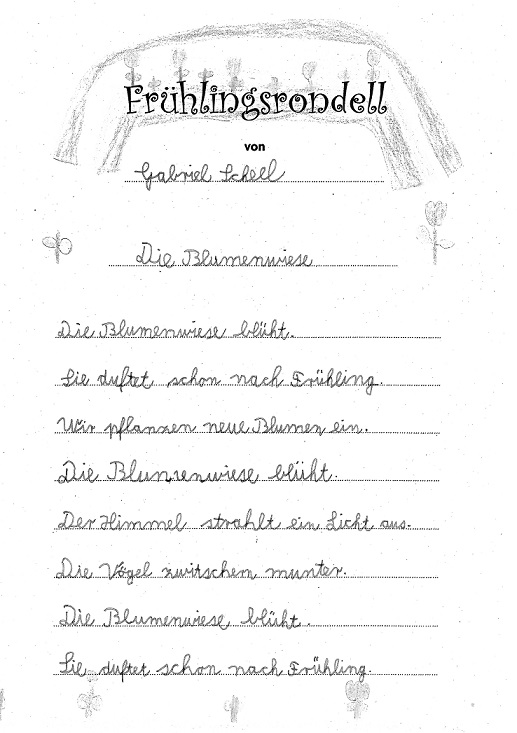 Frühlingsrondell
von
Gabriel Scheel
Die Blumenwiese
Die Blumenwiese blüht.
Sie duftet schon nach Frühling.
Wir pflanzen neue Blumen ein.
Die Blumenwiese blüht.
Der Himmel strahlt ein Licht aus.
Die Vögel zwitschern munter.
Die Blumenwiese blüht.
Sie duftet schon nach Frühling.